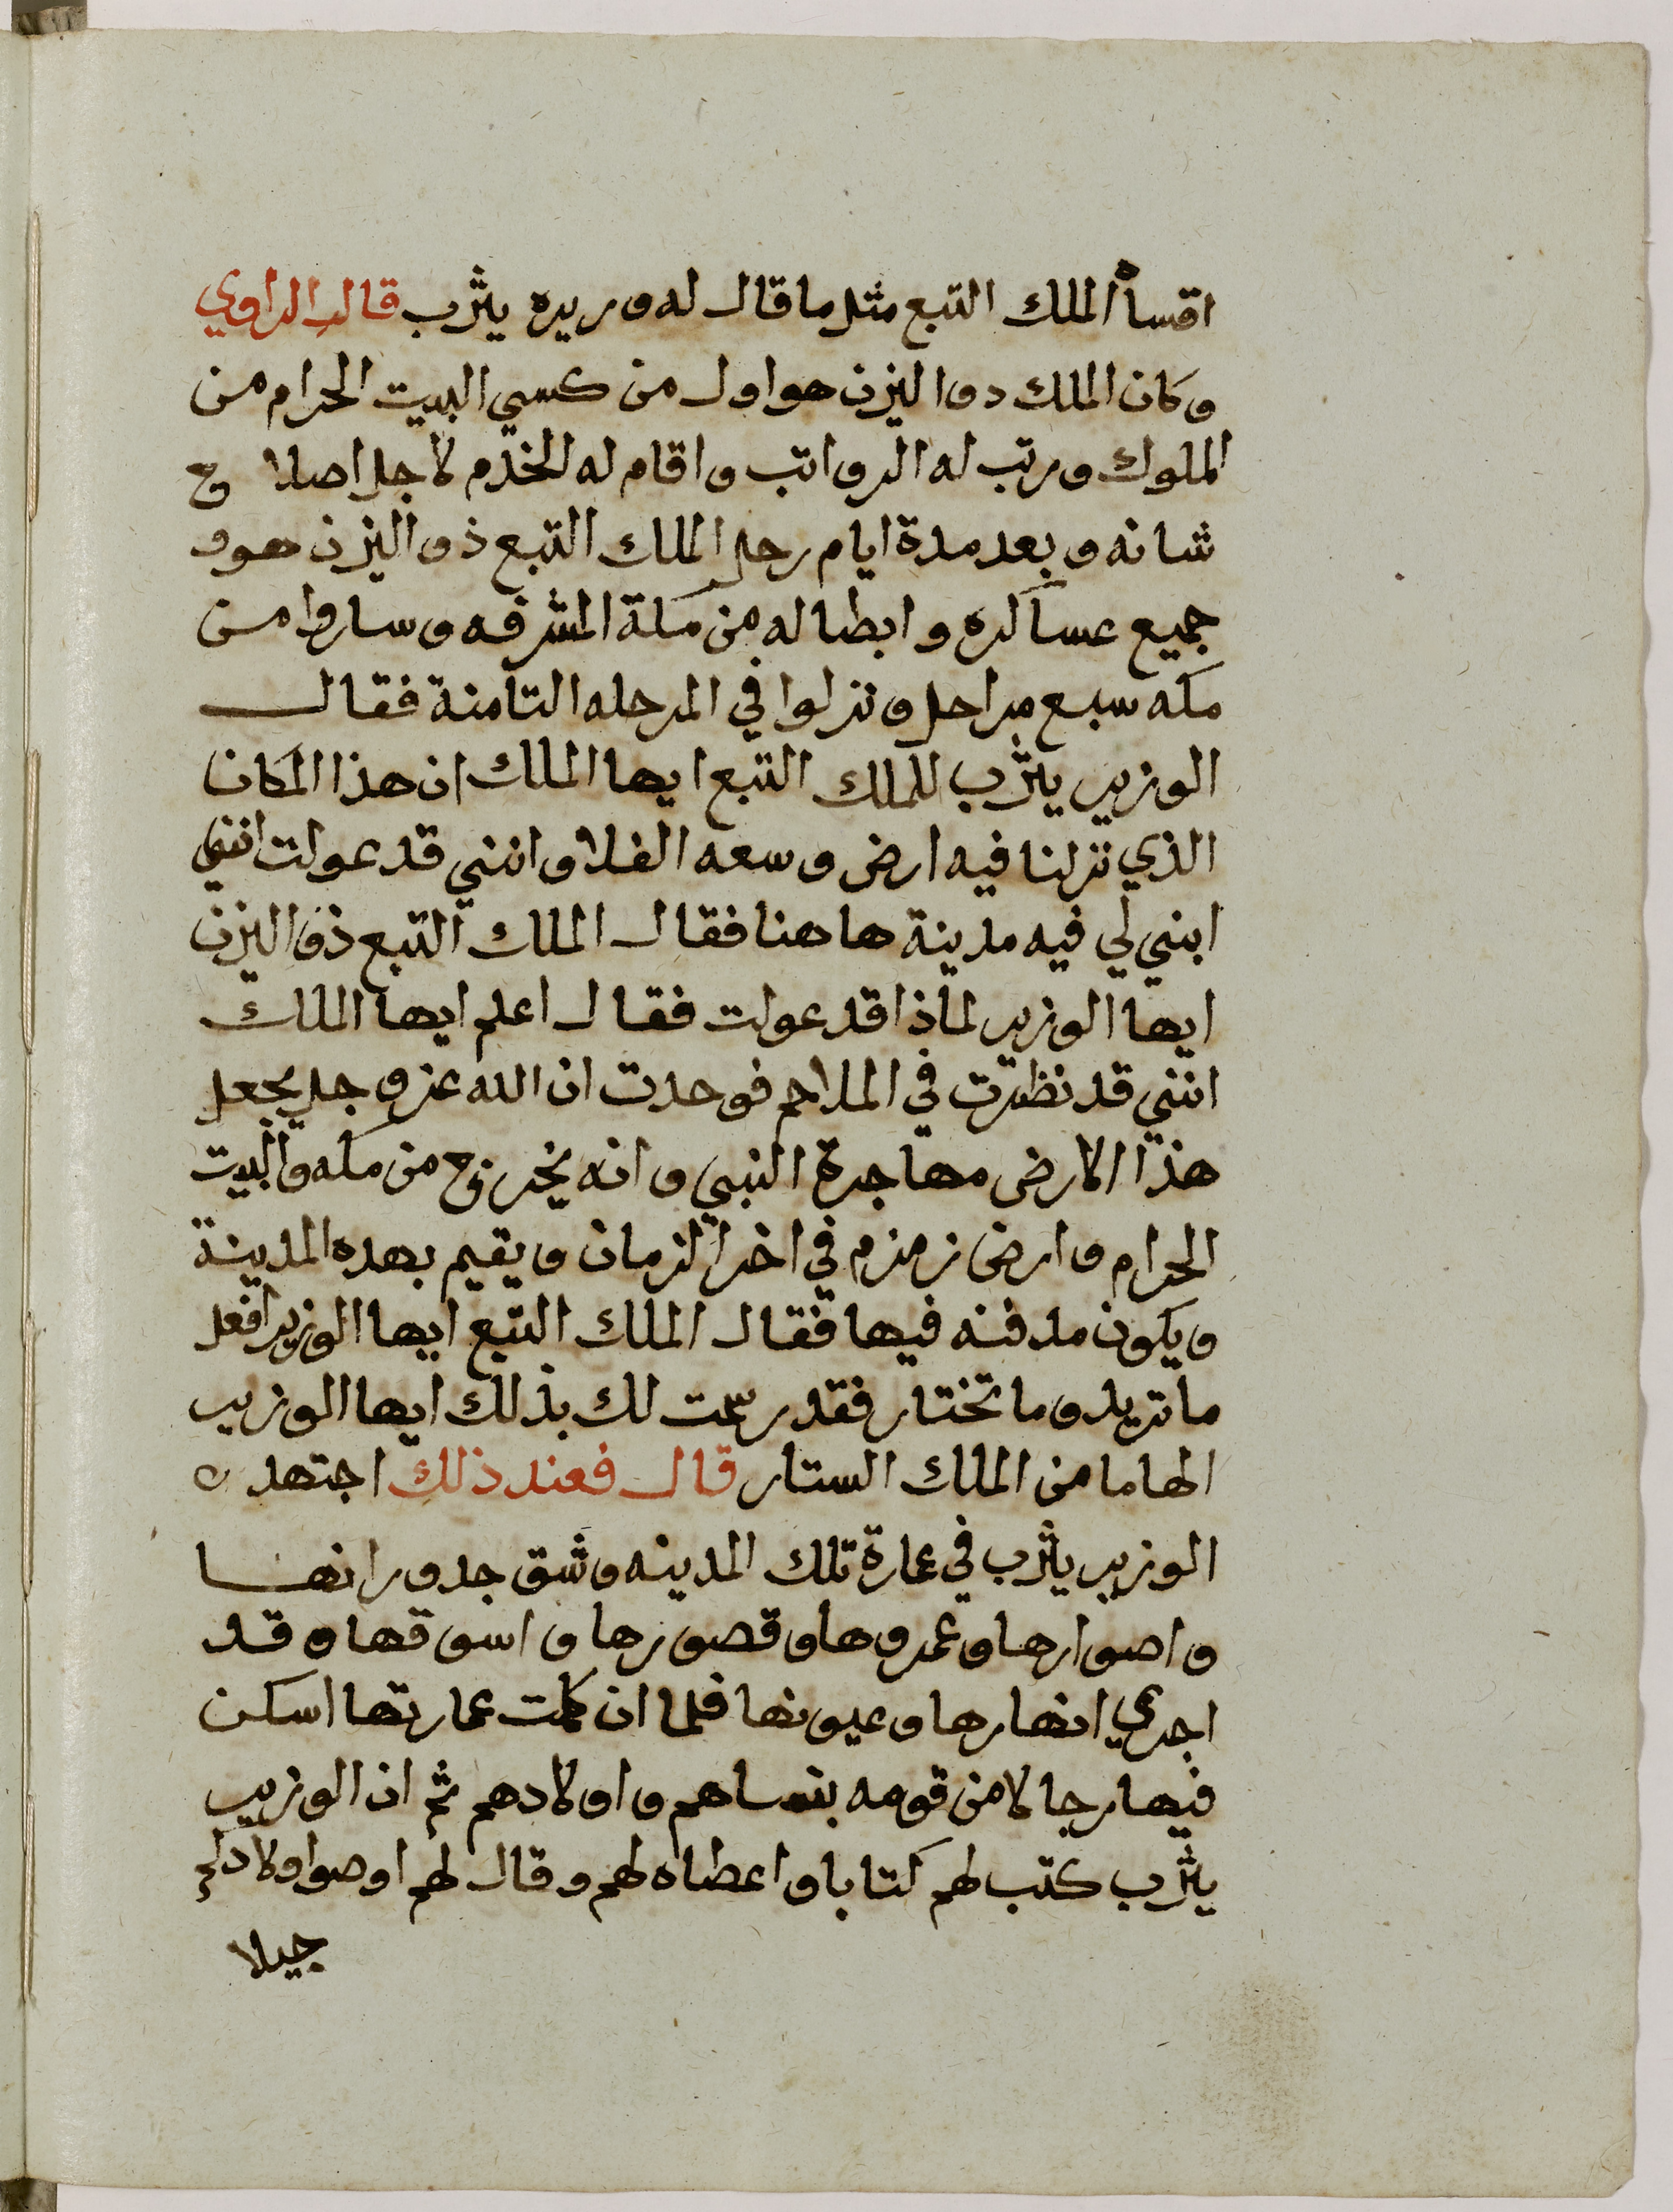 اقسا الملك التبع مثل ما قال له وريره يثرب قال الراوي
وكان الملك دوا اليزن هو اول من كسي البيت الحرام من
الملوك ورتب له الرواتب واقام له الخدم لاجل اصلاح
شانه وبعد مدة ايام رحل الملك التبع ذو اليزن هوو
جميع عساكره وابطاله من مكة المشرفه وساروا من
مكه سبع مراحل ونزلوا في المرحله التامنة فقال
الوزير يثرب للملك التبع ايها الملك ان هذا المكان
الذي نزلنا فيه ارض وسعه الفلا وانني قد عولت انني
ابني لي فيه مدينة هاهنا فقال الملك التبع ذو اليزن
ايها الوزير لماذا قد عولت فقال اعلم ايها الملك
انني قد نظرت في الملاحم فوحدت ان الله عز وجل يجعل
هذا الارض مهاجرة النبي وانه يخرج من مكه والبيت
الحرام وارض زمزم في اخر الزمان ويقيم بهده المدينة
ويكون مدفنه فيها فقال الملك التبع ايها الوزير افعل
ما تريد وما تختار فقد رسمت لك بذلك ايها الوزير
الهاما من الملك الستار قال فعند ذلك اجتهد ه
الوزير يثرب في عمارة تلك المدينه وشق جدورانها
واصوارها وعمروها وقصورها واسوقها وقد
اجري انهارها وعيونها فلما ان كملت عمارتها اسكن
فيها رجالا من قومه بنساهم واولادهم ثم ان الوزير
يثرب كتب لهم كتابا واعطاه لهم وقال لهم اوصوا اولادكم
جيلا